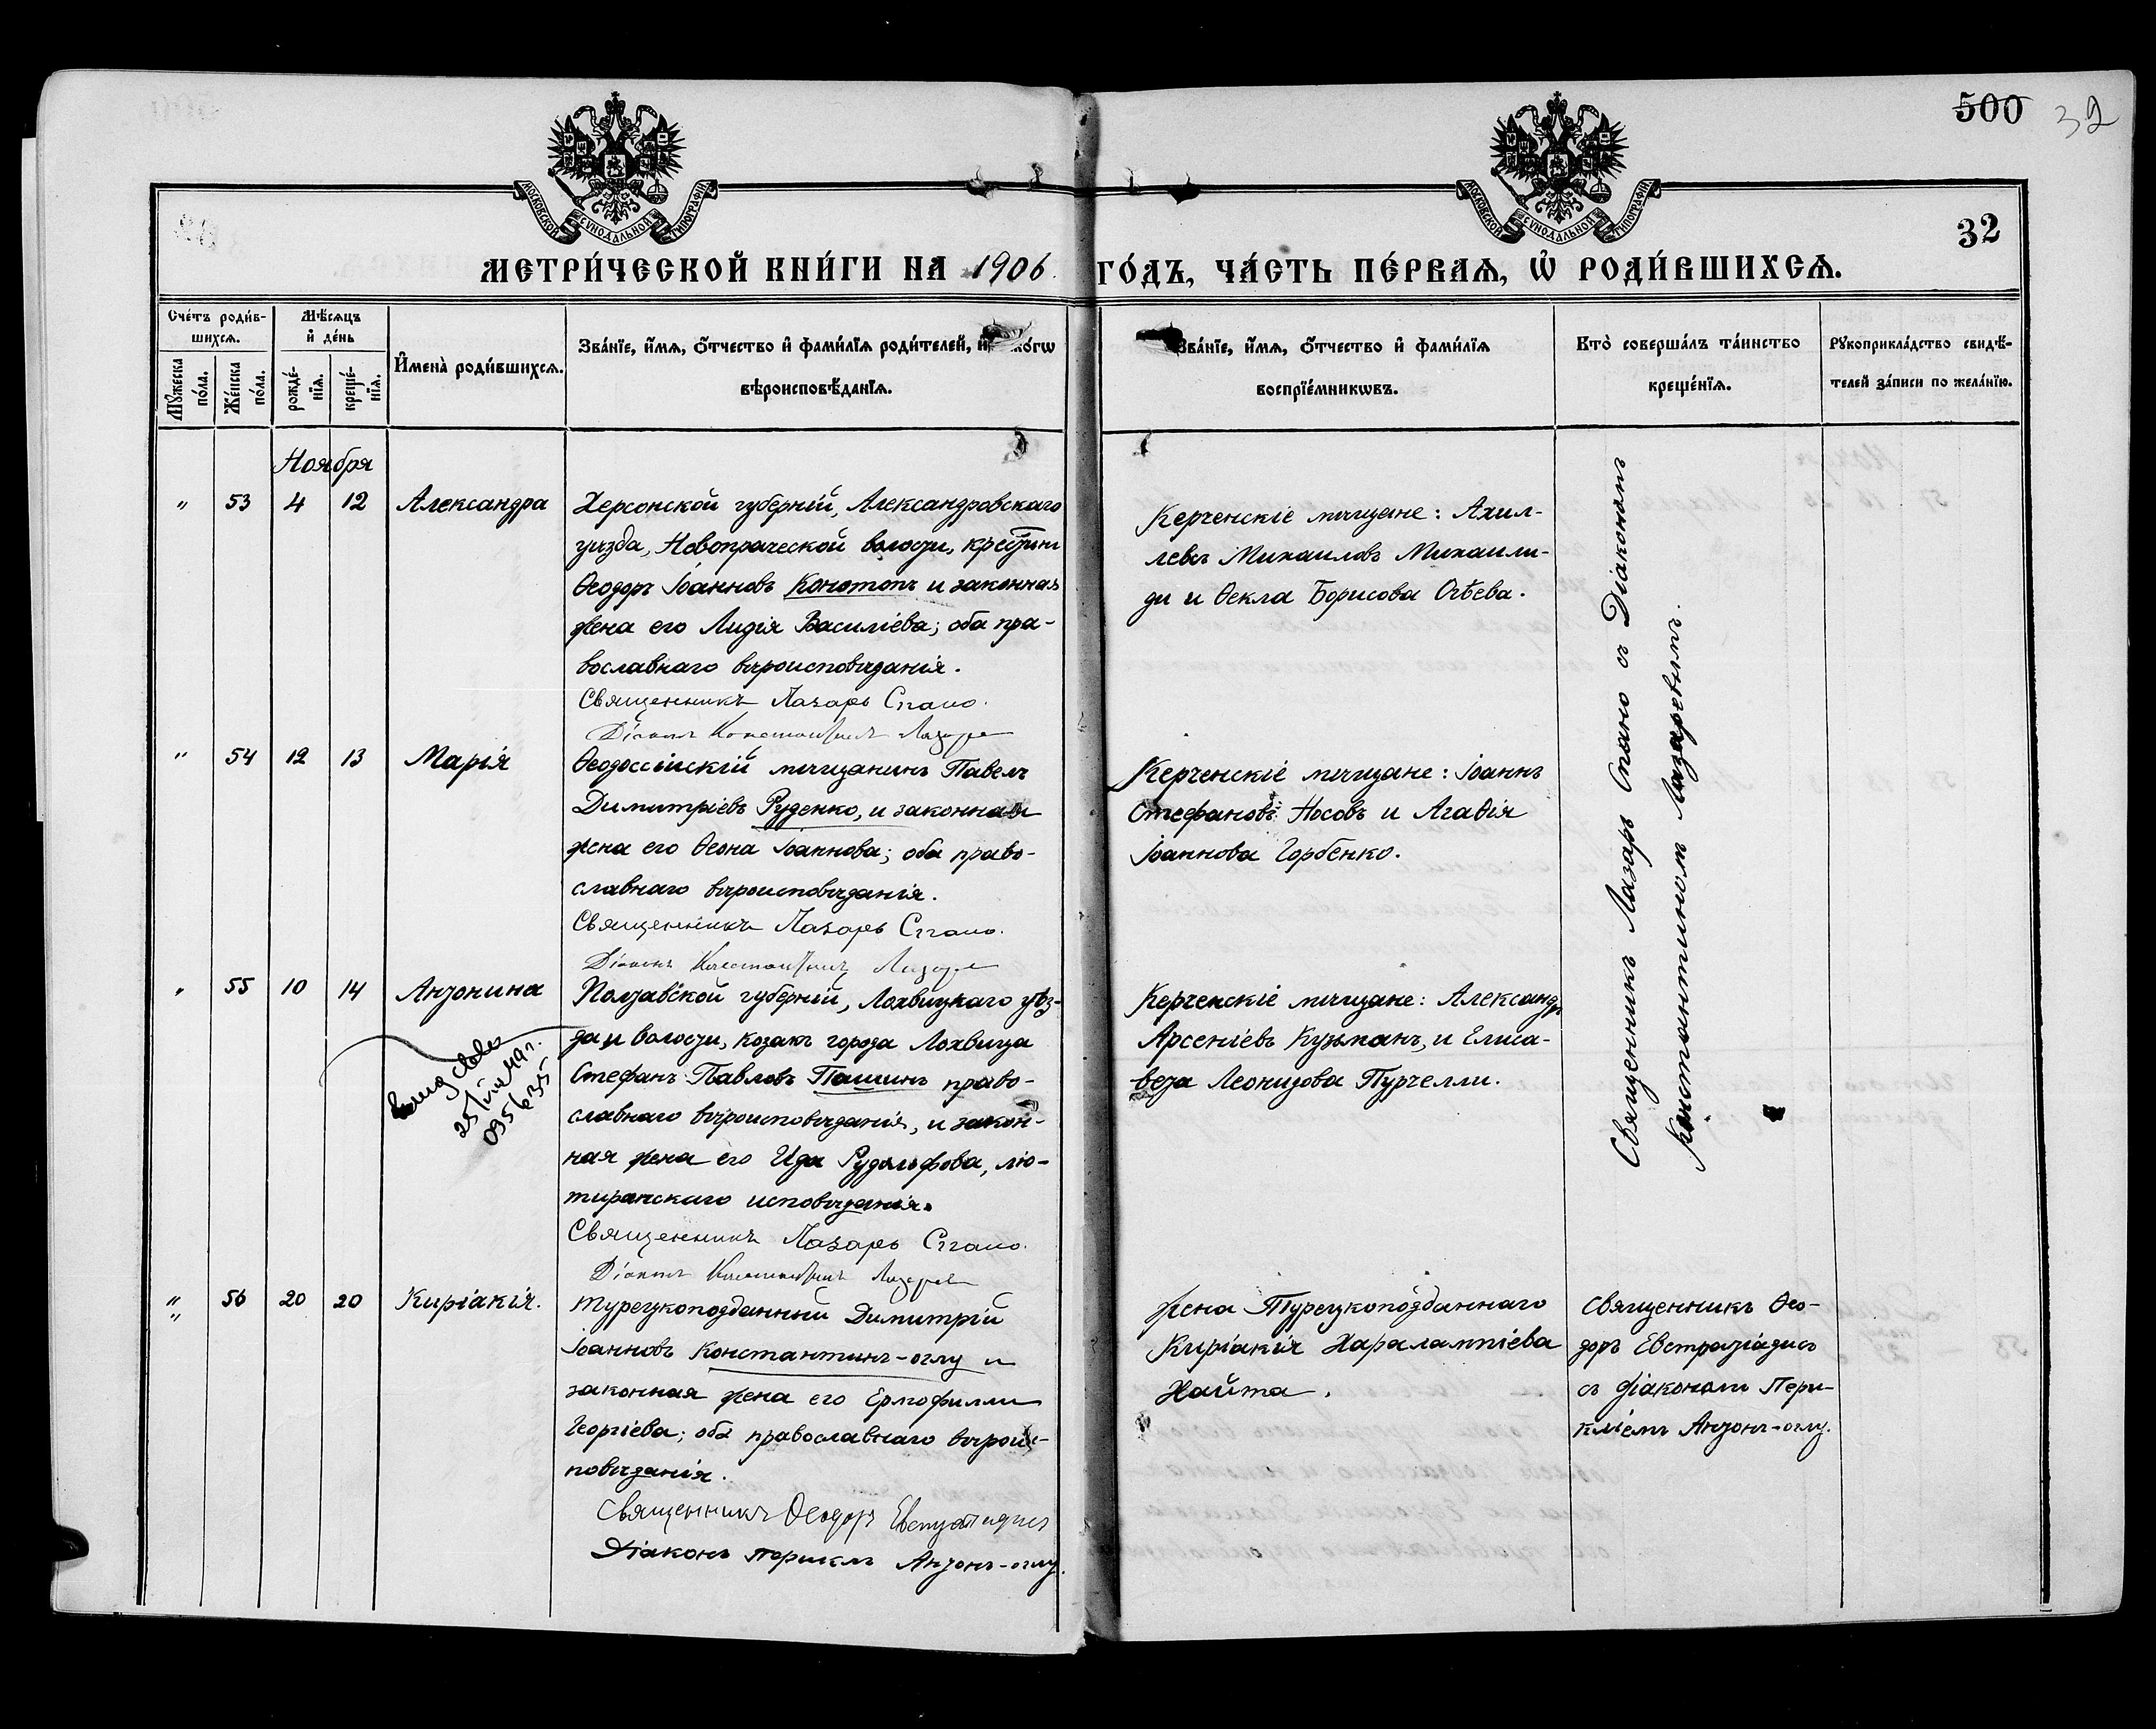 500 32
МОСКОВСКОЙ СУНОДАЛЬНОЙ ТИПОГРАФІИ
МОСКОВСКОЙ СУНОДАЛЬНОЙ ТИПОГРАФІИ
32
МЕТРИ́ЧЕСКОЙ КНИ́ГИ НА 1906. ГО́ДЪ, ЧА́СТЬ ПЕ́РВАѦ, Ѡ҆ РОДИ́ВШИХСѦ.
Сче́тъ роди́в-
шихсѧ.
Мꙋ́жеска по́ла.
Же́нска по́ла.
Мѣ́сѧцъ
и҆ де́нь
рожде́-
нїѧ.
креще́-
нїѧ.
И҆мена̀ роди́вшихсѧ.
Зва́нїе, и҆́мѧ, ѻ҆́тчество и҆ фами́лїѧ роди́телей, и҆ ко́гѡ
вѣроисповѣ́данїѧ.
Зва́нїе, и҆́мѧ, ѻ҆́тчество и҆ фами́лїѧ
воспрїе́мникѡвъ.
Кто̀ соверша́лъ та́инство
креще́нїѧ.
Рꙋкоприкла́дство свидѣ́-
телей за́писи по жела́нїю.
Ноября
" 53 4 12 Александра
Херсонской губерніи, Александровскаго
уѣзда, Новопражеской волости,
Ѳеодоръ Іоанновъ Конотопъ и законная
жена его Лидія Василіева; оба пра-
вославнаго вѣроисповѣданія.
Священникъ Лазарь Спано.
Діаконъ Константинъ Лазаре
Керченскіе мѣщане: Ахил-
левъ Михаиловъ Михаили-
ди и Ѳекла Борисова
Священникъ Лазарь Спано съ Діакономъ
Константиномъ Лазаревымъ.
" 54 12 13 Марія
Ѳеодоссійскій мѣщанинъ Павелъ
Димитріевъ Руденко, и законная
жена его Ѳеона Іоаннова; оба право-
славнаго вѣроисповѣданія.
Священникъ Лазарь Спано.
Діаконъ Константинъ Лазаре
Керченскіе мѣщане: Іоаннъ
Стефановъ Носовъ и Агаѳія
Іоаннова Горбенко.
" 55 10 14 Антонина
25/
Полтавской губерніи, Лохвицкаго уѣз-
да и волости, козакъ города Лохвица
Стефанъ Павловъ Пашинъ право-
славнаго вѣроисповѣданія, и закон-
ная жена его Ида Рудольфова, лю-
теранскаго исповѣданія.
Священникъ Лазарь Спано.
Діаконъ Константинъ Лазаре
Керченскіе мѣщане: Александръ
Арсеніевъ Кузьманъ, и Елиса-
вета Леонидова Пурчелли.
" 56 20 20 Киріакія.
"
Турецкоподданный Димитрій
Іоанновъ Константинъ-оглу и
законная жена его Ермофилли
Георгіева; оба православнаго вѣроис-
повѣданія.
Священникъ Ѳеодоръ
Діаконъ Периклъ Антонъ-оглу.
жена Турецкоподданнаго
Киріакія Харалампіева
Хайта.
Священникъ Ѳео-
доръ Евстратіадисъ
съ діакономъ Пери-
клiемъ Антонъ-оглу.